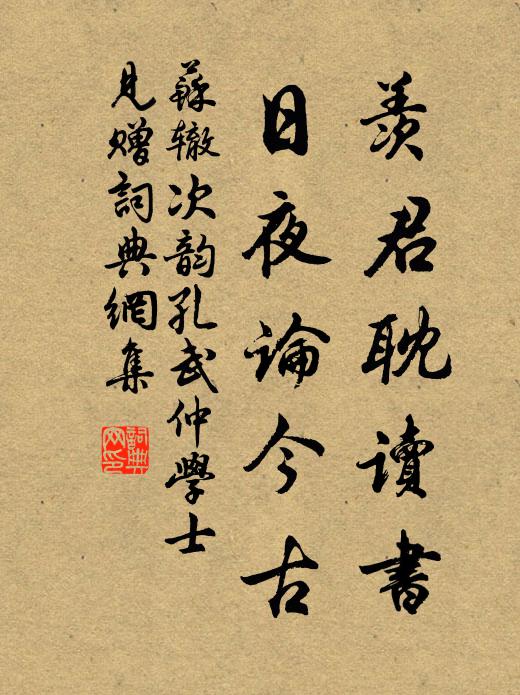 羨君耽讀書
日夜論今古
蘇辙次韵孔武仲學士
見贈詞典網集
詞典网印